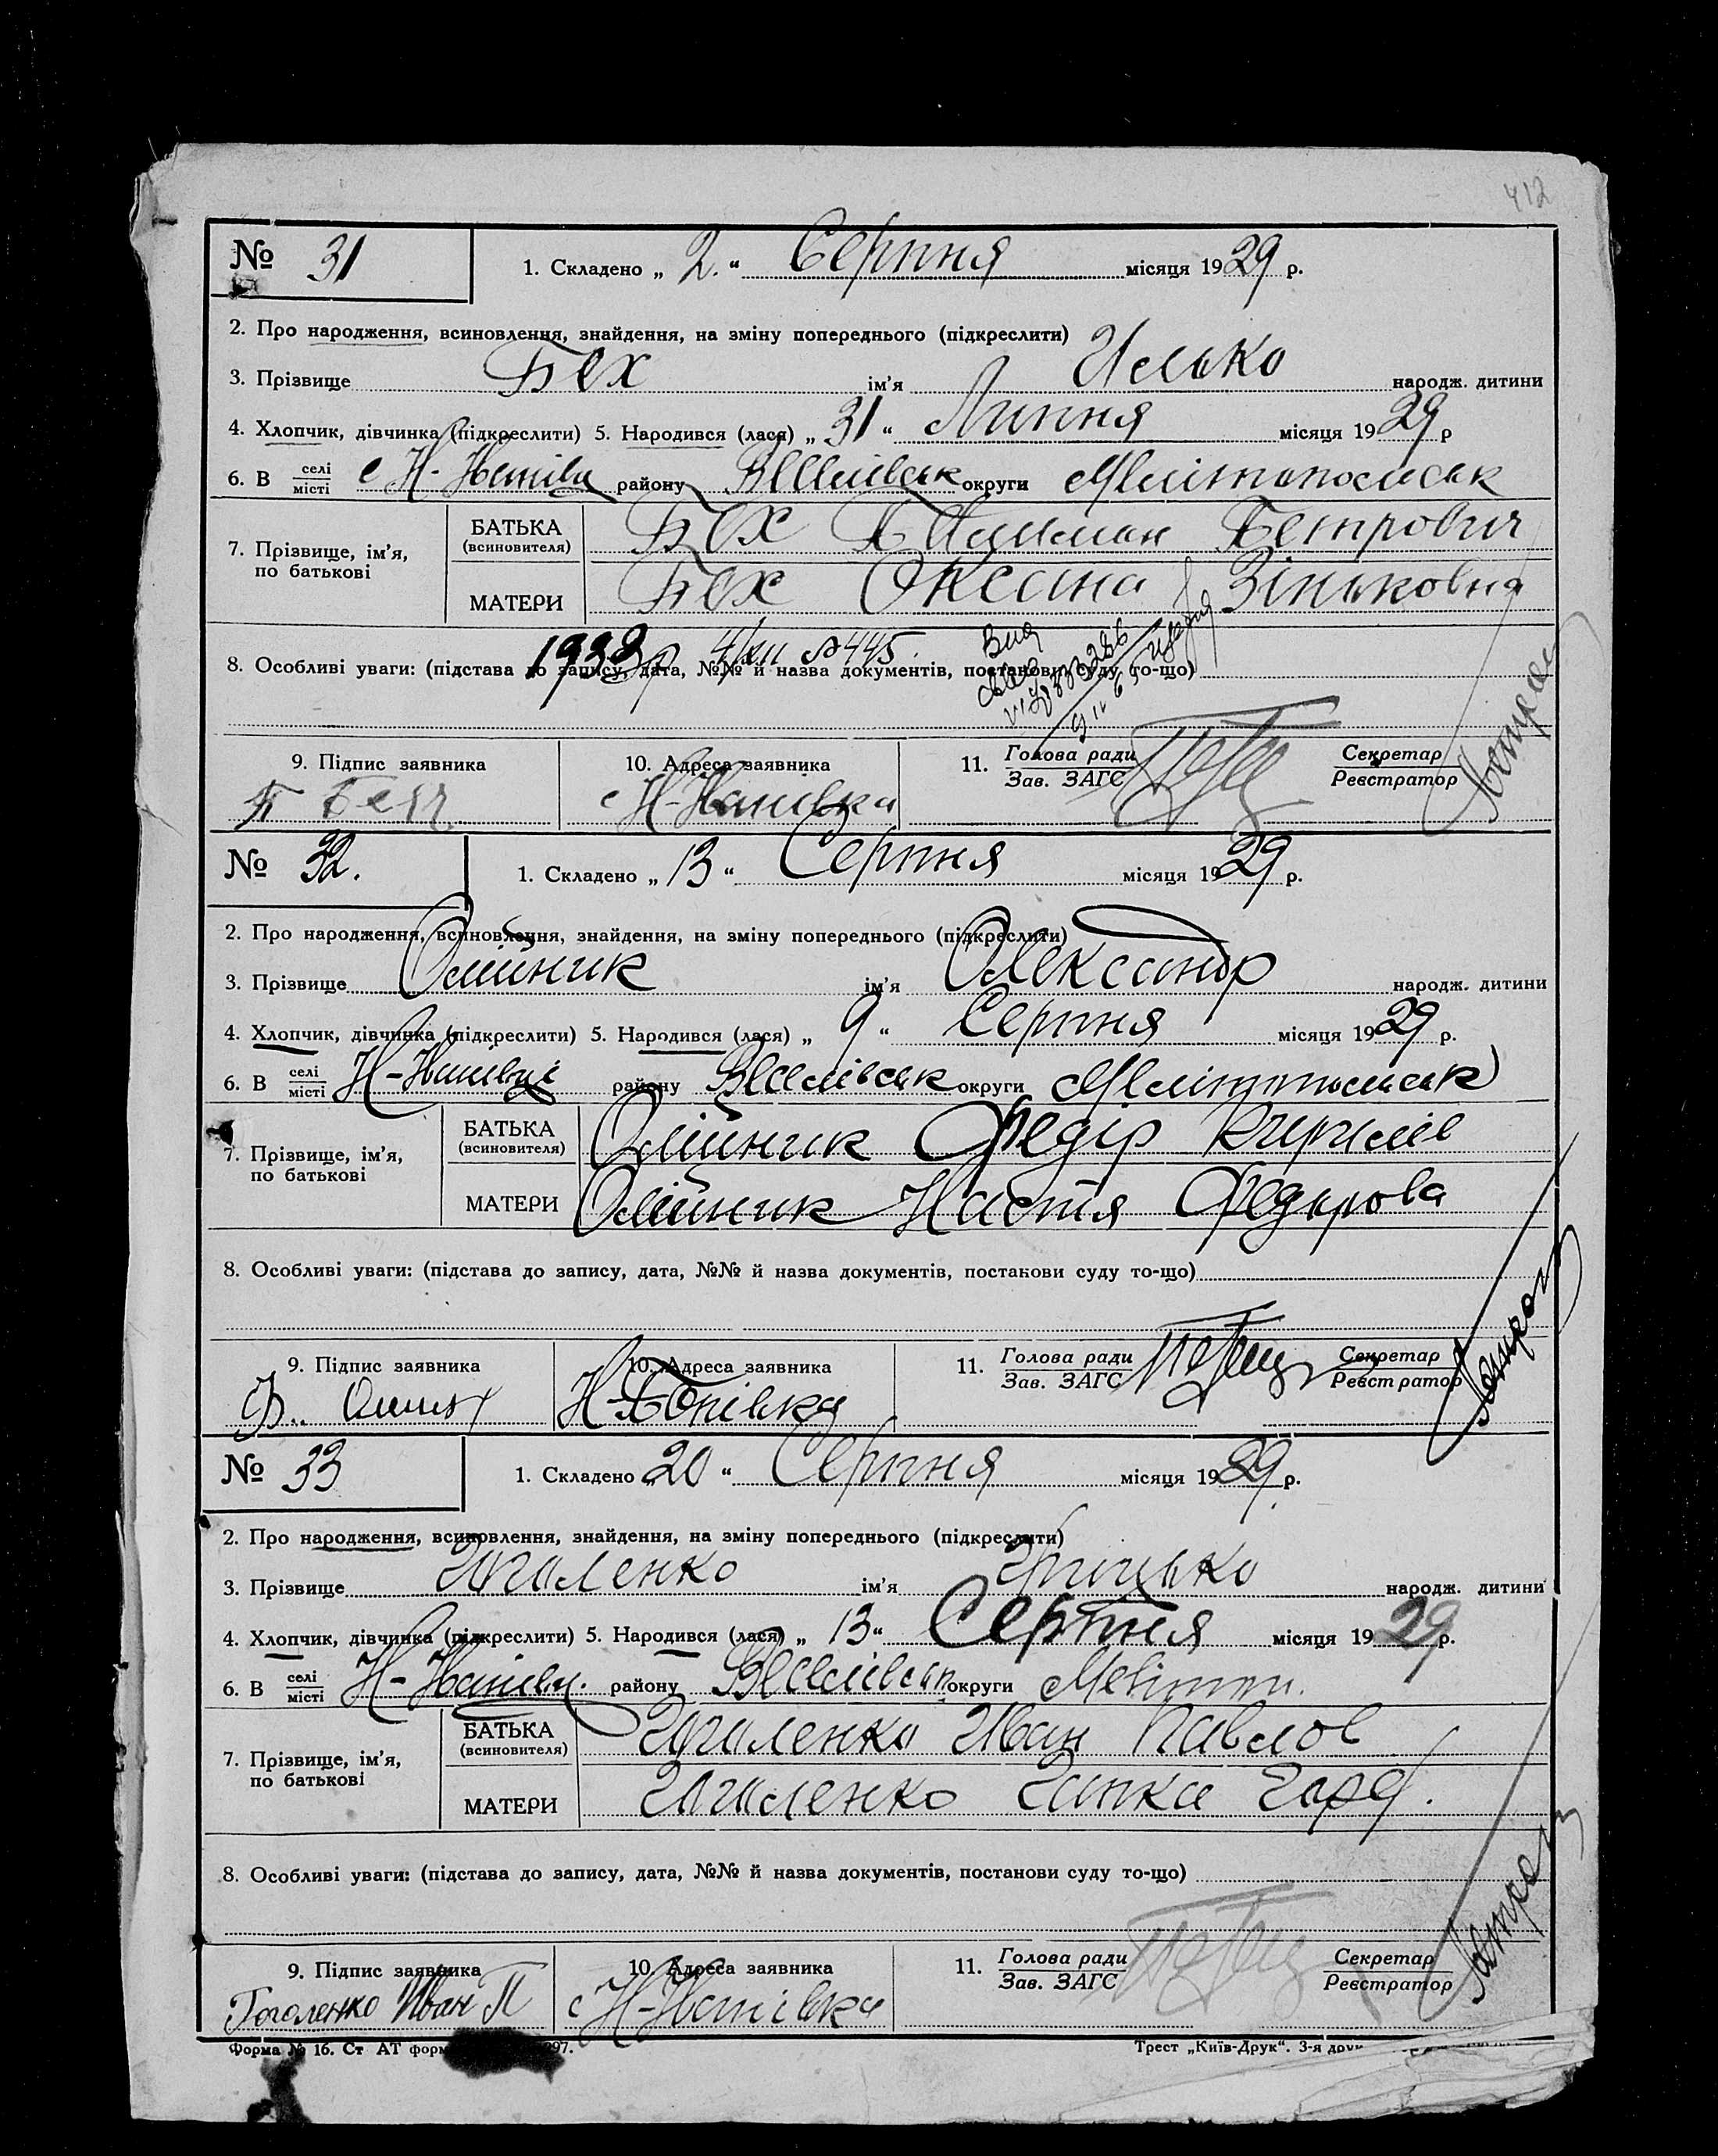 412
№ 31
1. Складено „ 2. “ Серпня місяця 1929 р.
2. Про народження, всиновлення, знайдення, на зміну попереднього (підкреслити)
3. Прізвище Бех ім’я Илько народж. дитини
4. Хлопчик, дівчинка (підкреслити) 5. Народився (лася) „ 31 “ Липня місяця 1929 р
6. В селі місті району Веселівськ округи Мелітопольськ
7. Прізвище, ім’я, по батькові
БАТЬКА (всиновителя) Бех Петрович
МАТЕРИ Бех Оксана Зіньковна
8. Особливі уваги: (підстава до запису, дата, №№ й назва документів, постанови суду то-що)
4/XII №445.
9. Підпис заявника 10. Адреса заявника 11. Голова ради Зав. ЗАГС Секретар Реєстратор
№ 32.
1. Складено „ 13 “ Серпня місяця 1929 р.
2. Про народження, всиновлення, знайдення, на зміну попереднього (підкреслити)
3. Прізвище Олійник ім’я Олександр народж. дитини
4. Хлопчик, дівчинка (підкреслити) 5. Народився (лася) „ 9 “ Серпня місяця 1929 р.
6. В селі місті району Веселівськ округи Мелітопольськ
7. Прізвище, ім’я, по батькові
БАТЬКА (всиновителя) Олійник Федір Кирилів
МАТЕРИ Олійник Настя Федырова
8. Особливі уваги: (підстава до запису, дата, №№ й назва документів, постанови суду то-що)
9. Підпис заявника 10. Адреса заявника 11. Голова ради Зав. ЗАГС Секретар Реєстратор
№ 33
1. Складено „ 20 “ Серпня місяця 1929 р.
2. Про народження, всиновлення, знайдення, на зміну попереднього (підкреслити)
3. Прізвище Гоголенко ім’я Грицько народж. дитини
4. Хлопчик, дівчинка (підкреслити) 5. Народився (лася) „ 13 “ Серпня місяця 1929 р.
6. В селі місті району Веселівськ округи
7. Прізвище, ім’я, по батькові
БАТЬКА (всиновителя) Гоголенко Иван Павлов
МАТЕРИ Гоголенко
8. Особливі уваги: (підстава до запису, дата, №№ й назва документів, постанови суду то-що)
9. Підпис заявника 10. Адреса заявника 11. Голова ради Зав. ЗАГС Секретар Реєстратор
Гоголенко Иван П
Форма № 16. Ст АТ форм 97. Трест „Київ-Друк“. 3-я друк